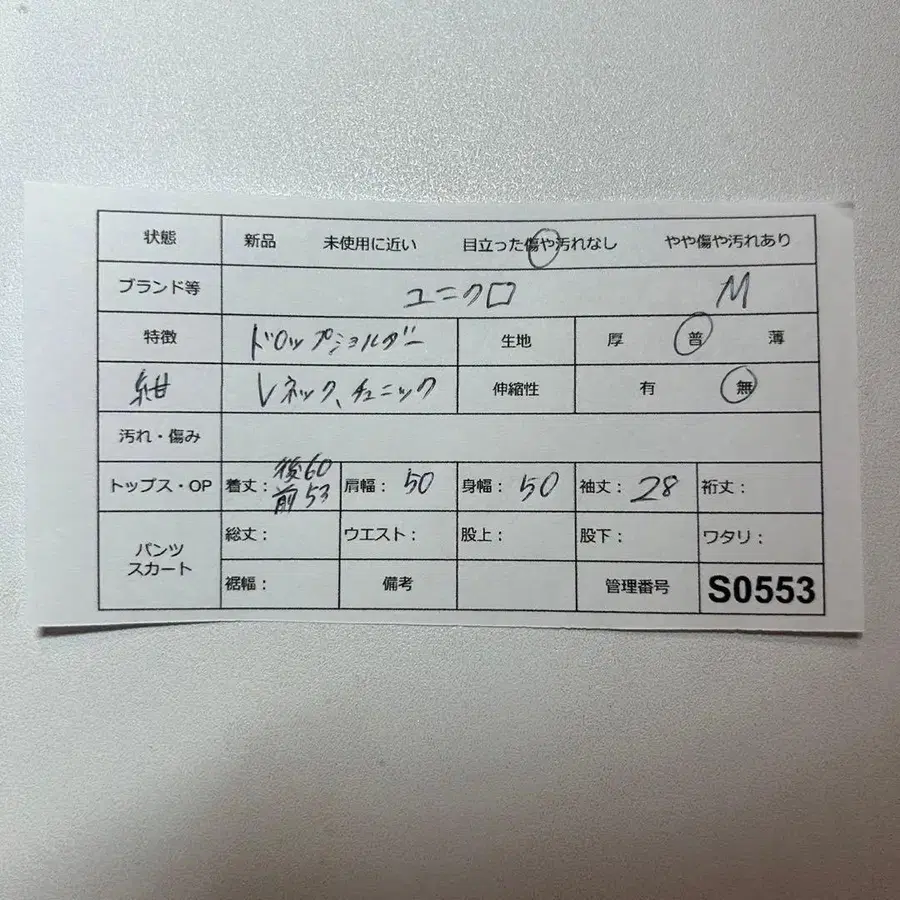 状態 新品 未使用に近い 目立った傷や汚れなし やや傷や汚れあり
ブランド等 ユニクロ M
特徴 ドロップショルダー 生地 厚 普 薄
紺 Vネック、チュニック 伸縮性 有 無
汚れ・傷み
トップス・OP 着丈: 後60 前53 肩幅: 50 身幅: 50 袖丈: 28 裄丈:
パンツ スカート 総丈: ウエスト: 股上: 股下: ワタリ:
裾幅: 備考 管理番号 S0553